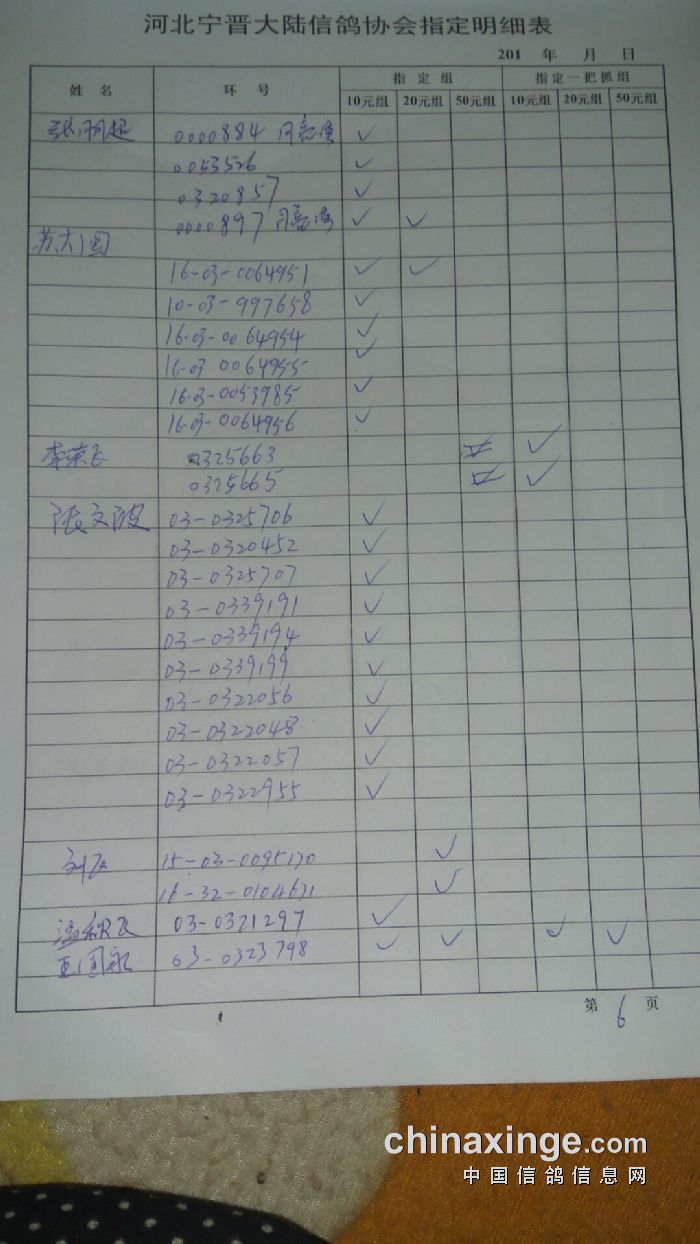 河北宁晋大陆信鸽协会指定明细表
201 年 月 日
姓 名 环 号 指 定 组 指 定 一 把 抓 组
10元组 20元组 50元组 10元组 20元组 50元组
0000884 ✓
0053526 ✓
0320857 ✓
0000897 ✓ ✓
苏大国
16-03-0064951 ✓ ✓
10-03-997658 ✓
16-03-0064954 ✓
16-03 0064955 ✓
16-03-0053985 ✓
16-03-0064956 ✓
李荣飞 0325663 ✓
0325665 ✓
张文波 03-0325706 ✓
03-0320452 ✓
03-0325707 ✓
03-0339191 ✓
03-0339194 ✓
03-0339199 ✓
03-0322056 ✓
03-0322048 ✓
03-0322057 ✓
03-0322955 ✓
15-03-0095170 ✓
16-32-0104671 ✓
03-0321297 ✓
03-0323798 ✓ ✓ ✓ ✓
第 6 页
chinaxinge.com
中国信鸽信息网